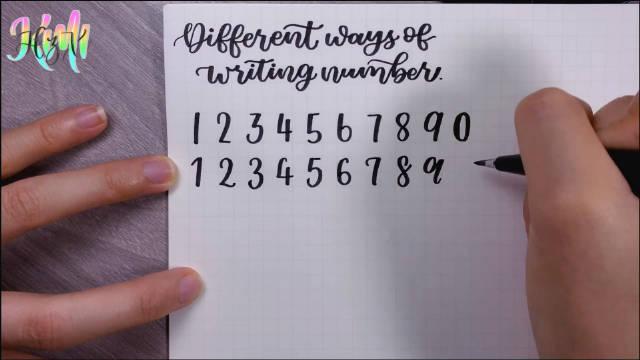 Different ways of
writing number.
1 2 3 4 5 6 7 8 9 0
1 2 3 4 5 6 7 8 9